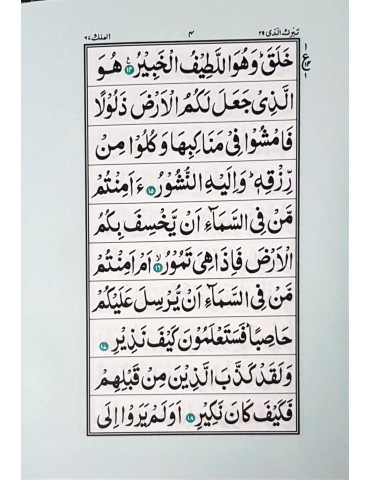 تبٰرك الذى ٢٩ ٤ الملك ٦٧
خَلَقَ ؕ وَهُوَ اللَّطِيْفُ الْخَبِيْرُ ﴿١٤﴾ هُوَ
الَّذِىْ جَعَلَ لَكُمُ الْاَرْضَ ذَلُوْلًا
فَامْشُوْا فِىْ مَنَاكِبِهَا وَكُلُوْا مِنْ
رِّزْقِهٖ ؕ وَاِلَيْهِ النُّشُوْرُ ﴿١٥﴾ ءَاَمِنْتُمْ
مَّنْ فِى السَّمَآءِ اَنْ يَّخْسِفَ بِكُمُ
الْاَرْضَ فَاِذَا هِىَ تَمُوْرُ ﴿١٦﴾ اَمْ اَمِنْتُمْ
مَّنْ فِى السَّمَآءِ اَنْ يُّرْسِلَ عَلَيْكُمْ
حَاصِبًا ؕ فَسَتَعْلَمُوْنَ كَيْفَ نَذِيْرِ ﴿١٧﴾
وَلَقَدْ كَذَّبَ الَّذِيْنَ مِنْ قَبْلِهِمْ
فَكَيْفَ كَانَ نَكِيْرِ ﴿١٨﴾ اَوَلَمْ يَرَوْا اِلَى